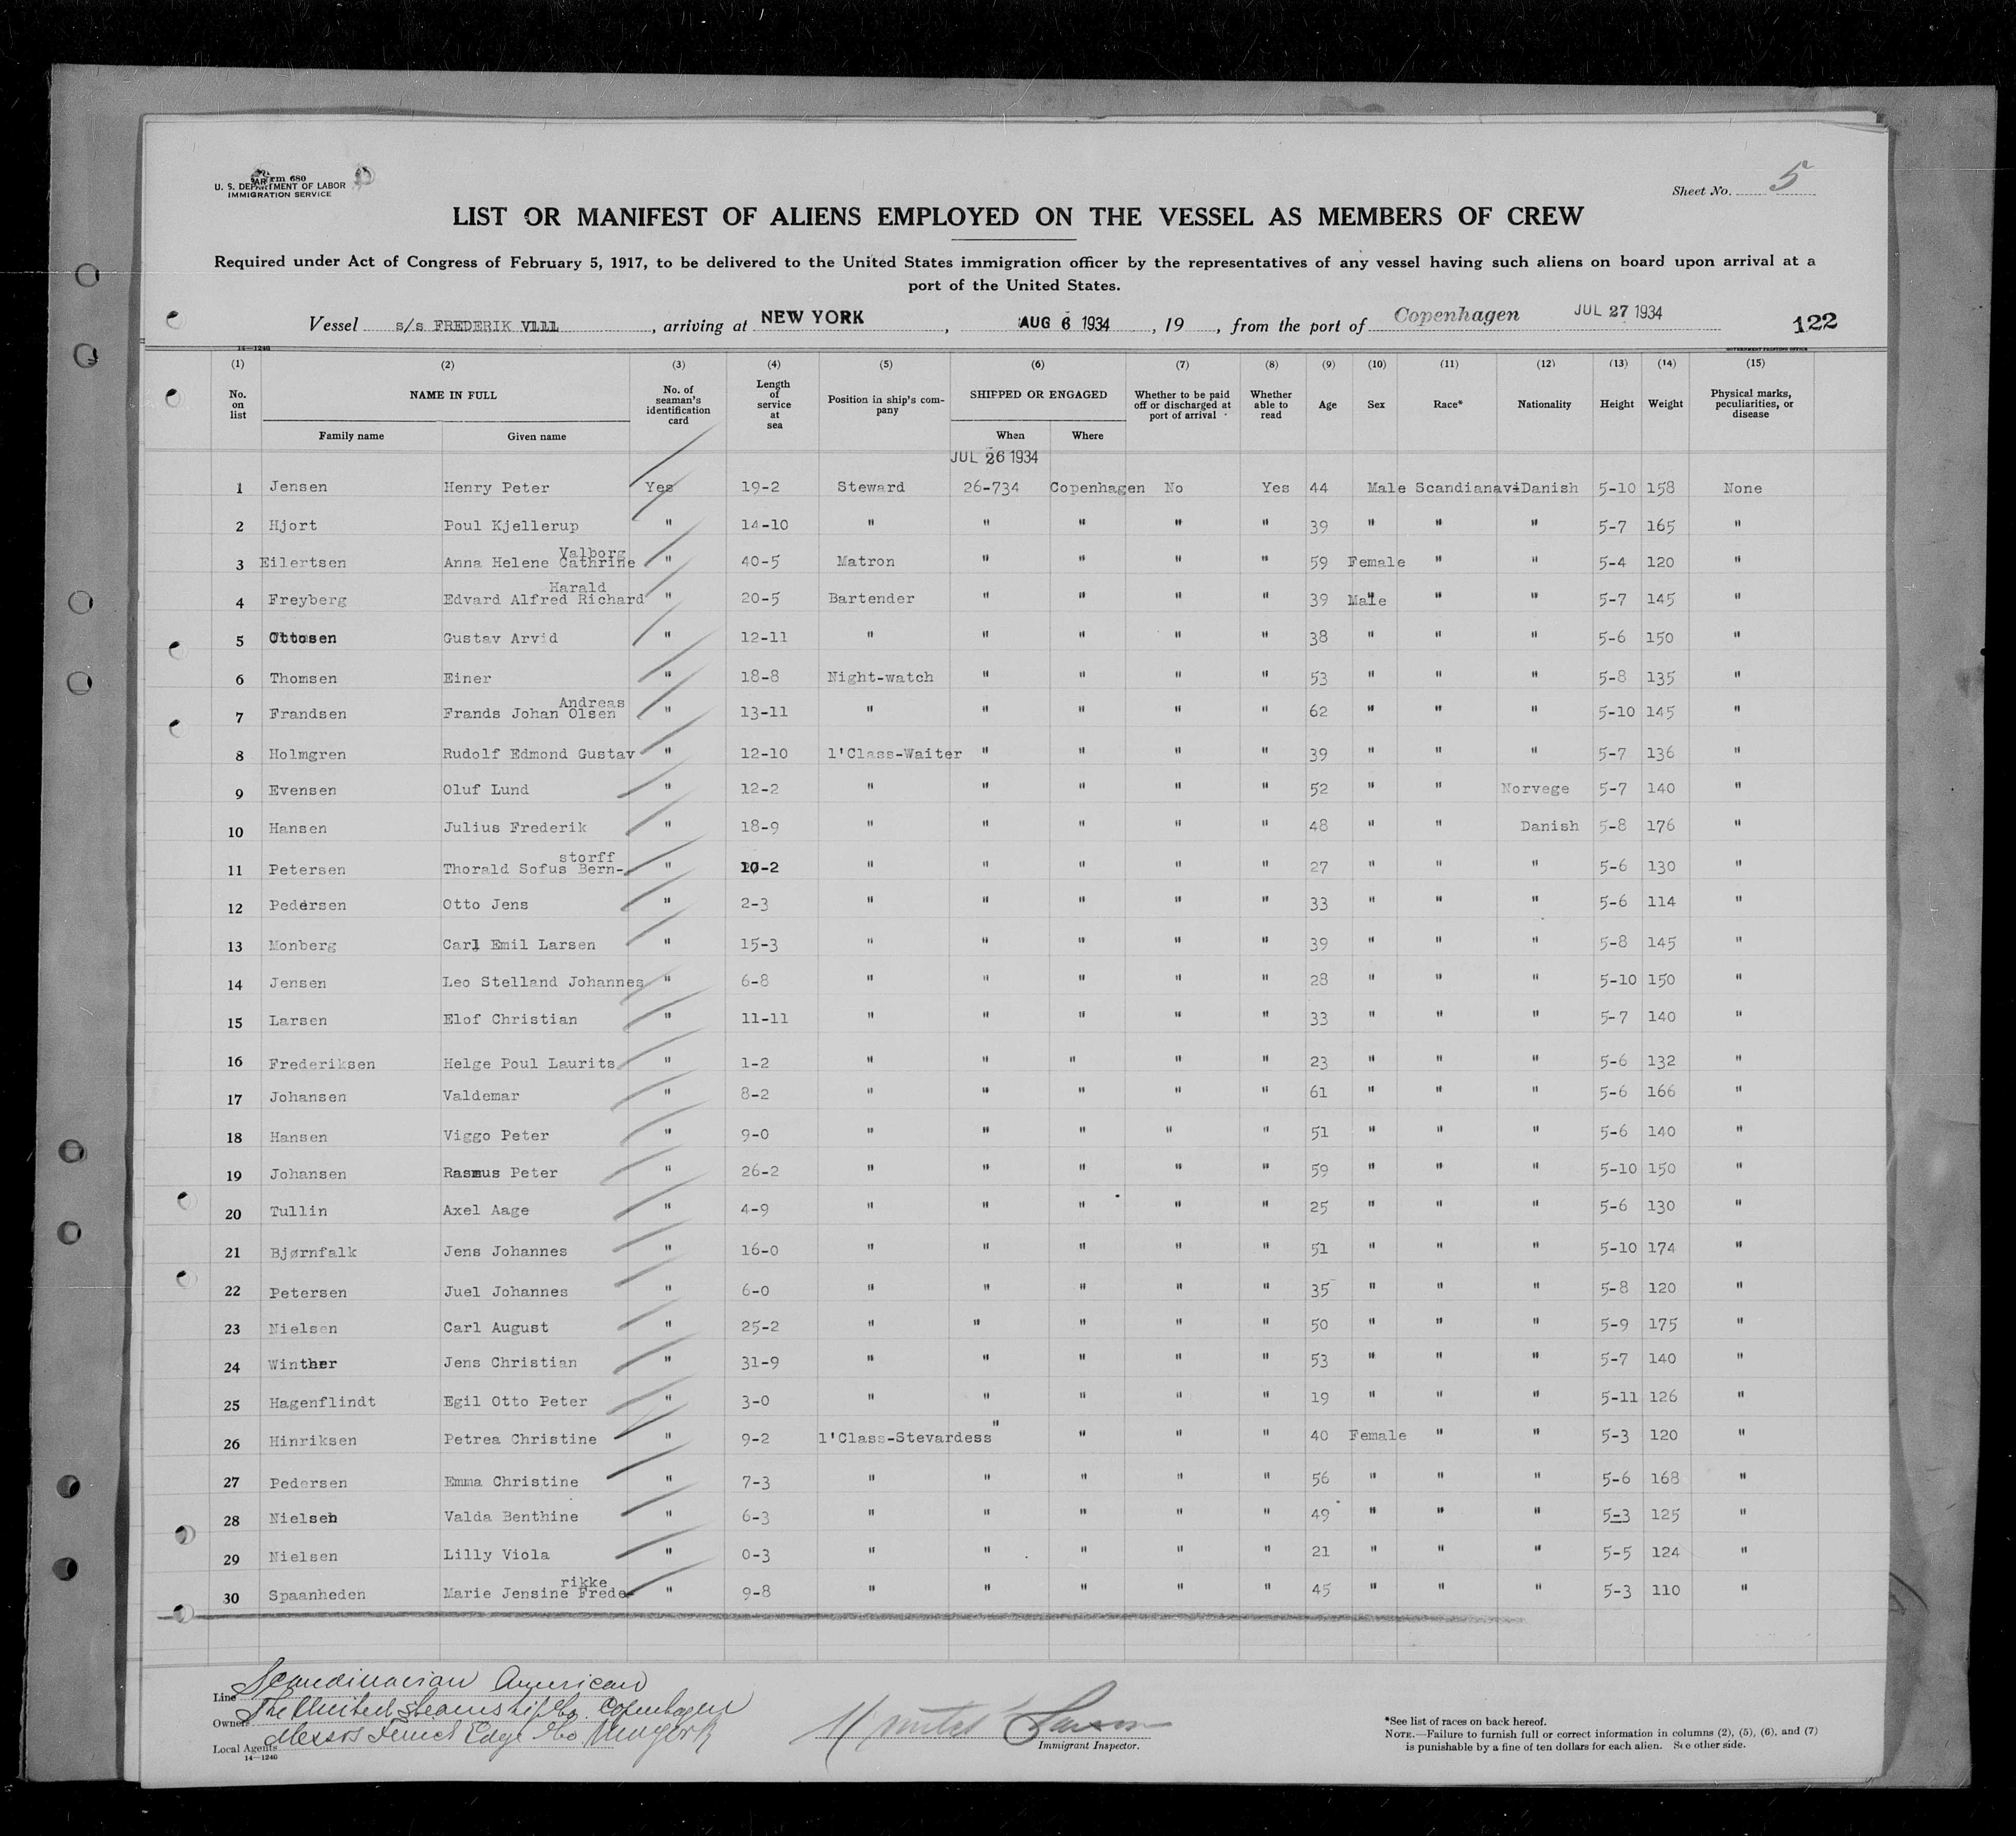 Form 680
U. S. DEPARTMENT OF LABOR
IMMIGRATION SERVICE
Sheet No. 5
LIST OR MANIFEST OF ALIENS EMPLOYED ON THE VESSEL AS MEMBERS OF CREW
Required under Act of Congress of February 5, 1917, to be delivered to the United States immigration officer by the representatives of any vessel having such aliens on board upon arrival at a
port of the United States.
Vessel s/s FREDERIK VLLL , arriving at NEW YORK , AUG 6 1934 , 19 , from the port of Copenhagen JUL 27 1934 122
14—1240 GOVERNMENT PRINTING OFFICE
(1) (2) (3) (4) (5) (6) (7) (8) (9) (10) (11) (12) (13) (14) (15)
No. on list NAME IN FULL Family name Given name No. of seaman's identification card Length of service at sea Position in ship's company SHIPPED OR ENGAGED When Where Whether to be paid off or discharged at port of arrival Whether able to read Age Sex Race* Nationality Height Weight Physical marks, peculiarities, or disease
JUL 26 1934
1 Jensen Henry Peter Yes 19-2 Steward 26-734 Copenhagen No Yes 44 Male Scandianavi Danish 5-10 158 None
2 Hjort Poul Kjellerup " 14-10 " " " " " 39 " " " 5-7 165 "
Valborg
3 Eilertsen Anna Helene Cathrine " 40-5 Matron " " " " 59 Female " " 5-4 120 "
Harald
4 Freyberg Edvard Alfred Richard " 20-5 Bartender " " " " 39 Male " " 5-7 145 "
5 Ottosen Gustav Arvid " 12-11 " " " " " 38 " " " 5-6 150 "
6 Thomsen Einer " 18-8 Night-watch " " " " 53 " " " 5-8 135 "
Andreas
7 Frandsen Frands Johan Olsen " 13-11 " " " " " 62 " " " 5-10 145 "
8 Holmgren Rudolf Edmond Gustav " 12-10 1'Class-Waiter " " " " 39 " " " 5-7 136 "
9 Evensen Oluf Lund " 12-2 " " " " " 52 " " Norvege 5-7 140 "
10 Hansen Julius Frederik " 18-9 " " " " " 48 " " Danish 5-8 176 "
storff
11 Petersen Thorald Sofus Bern- " 10-2 " " " " " 27 " " " 5-6 130 "
12 Pedersen Otto Jens " 2-3 " " " " " 33 " " " 5-6 114 "
13 Monberg Carl Emil Larsen " 15-3 " " " " " 39 " " " 5-8 145 "
14 Jensen Leo Stelland Johannes " 6-8 " " " " " 28 " " " 5-10 150 "
15 Larsen Elof Christian " 11-11 " " " " " 33 " " " 5-7 140 "
16 Frederiksen Helge Poul Laurits " 1-2 " " " " " 23 " " " 5-6 132 "
17 Johansen Valdemar " 8-2 " " " " " 61 " " " 5-6 166 "
18 Hansen Viggo Peter " 9-0 " " " " " 51 " " " 5-6 140 "
19 Johansen Rasmus Peter " 26-2 " " " " " 59 " " " 5-10 150 "
20 Tullin Axel Aage " 4-9 " " " " " 25 " " " 5-6 130 "
21 Bjørnfalk Jens Johannes " 16-0 " " " " " 51 " " " 5-10 174 "
22 Petersen Juel Johannes " 6-0 " " " " " 35 " " " 5-8 120 "
23 Nielsen Carl August " 25-2 " " " " " 50 " " " 5-9 175 "
24 Winther Jens Christian " 31-9 " " " " " 53 " " " 5-7 140 "
25 Hagenflindt Egil Otto Peter " 3-0 " " " " " 19 " " " 5-11 126 "
26 Hinriksen Petrea Christine " 9-2 1'Class-Stevardess " " " " 40 Female " " 5-3 120 "
27 Pedersen Emma Christine " 7-3 " " " " " 56 " " " 5-6 168 "
28 Nielsen Valda Benthine " 6-3 " " " " " 49 " " " 5-3 125 "
29 Nielsen Lilly Viola " 0-3 " " " " " 21 " " " 5-5 124 "
rikke
30 Spaanheden Marie Jensine Frede " 9-8 " " " " " 45 " " " 5-3 110 "
Line Scandinavian American
Owners The United Steamship Co. Copenhagen
Local Agents Messrs Edge Co
14—1240
Immigrant Inspector.
*See list of races on back hereof.
NOTE.—Failure to furnish full or correct information in columns (2), (5), (6), and (7)
is punishable by a fine of ten dollars for each alien. See other side.